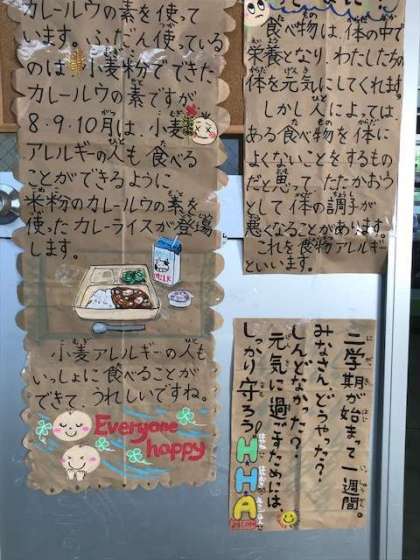 カレールウの素を使って
います。ふだん使っている
のは小麦粉でできた
カレールウの素ですが
8.9.10月は、小麦
アレルギーの人も食べる
ことができるように
米粉のカレールウの素を
使ったカレーライスが登場
します。
MILK
小麦アレルギーの人も
いっしょに食べることが
できて、うれしいですね。
Everyone
happy
食べ物は、体の中で
栄養となり、わたしたちの
体を元気にしてくれます。
しかし人によっては
ある食べ物を体に
よくないことをするもの
だと思って、たたかおう
として体の調子が
悪くなることがあります。
これを食物アレルギー
といいます。
二学期が始まって一週間。
みなさん、どうやった?
しんどなかった?
元気に過ごすためには
しっかり守ろう!
HHA